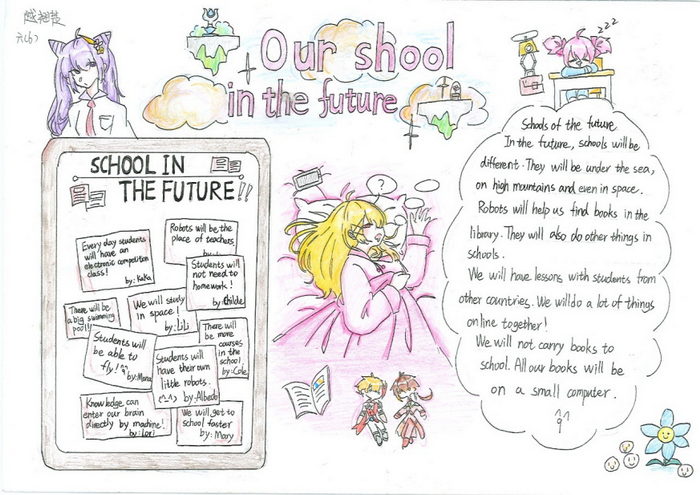 六(6)
Our shool
in the future
zzz
SCHOOL IN
THE FUTURE!!
Every day students
will have an
electronic competition
class!
by: KaKa
Robots will be the
place of teachers
by:
Students will
not need to
homework!
by: Childe
There will be
a big swimming
pool!!
We will study
in space!
by: LiLi
There will
be more
courses
in the
school.
by: Cole
Students will
be able to
fly!
by: Mona
Students will
have their own
little robots.
(^^) by Albedo
Knowledge can
enter our brain
directly by machine!
by: Lori
We will get to
school faster
by: Mary
?
Schools of the future
In the future, schools will be
different. They will be under the sea,
on high mountains and even in space.
Robots will help us find books in the
library. They will also do other things in
schools.
We will have lessons with students from
other countries. We will do a lot of things
online together!
We will not carry books to
school. All our books will be
on a small computer.